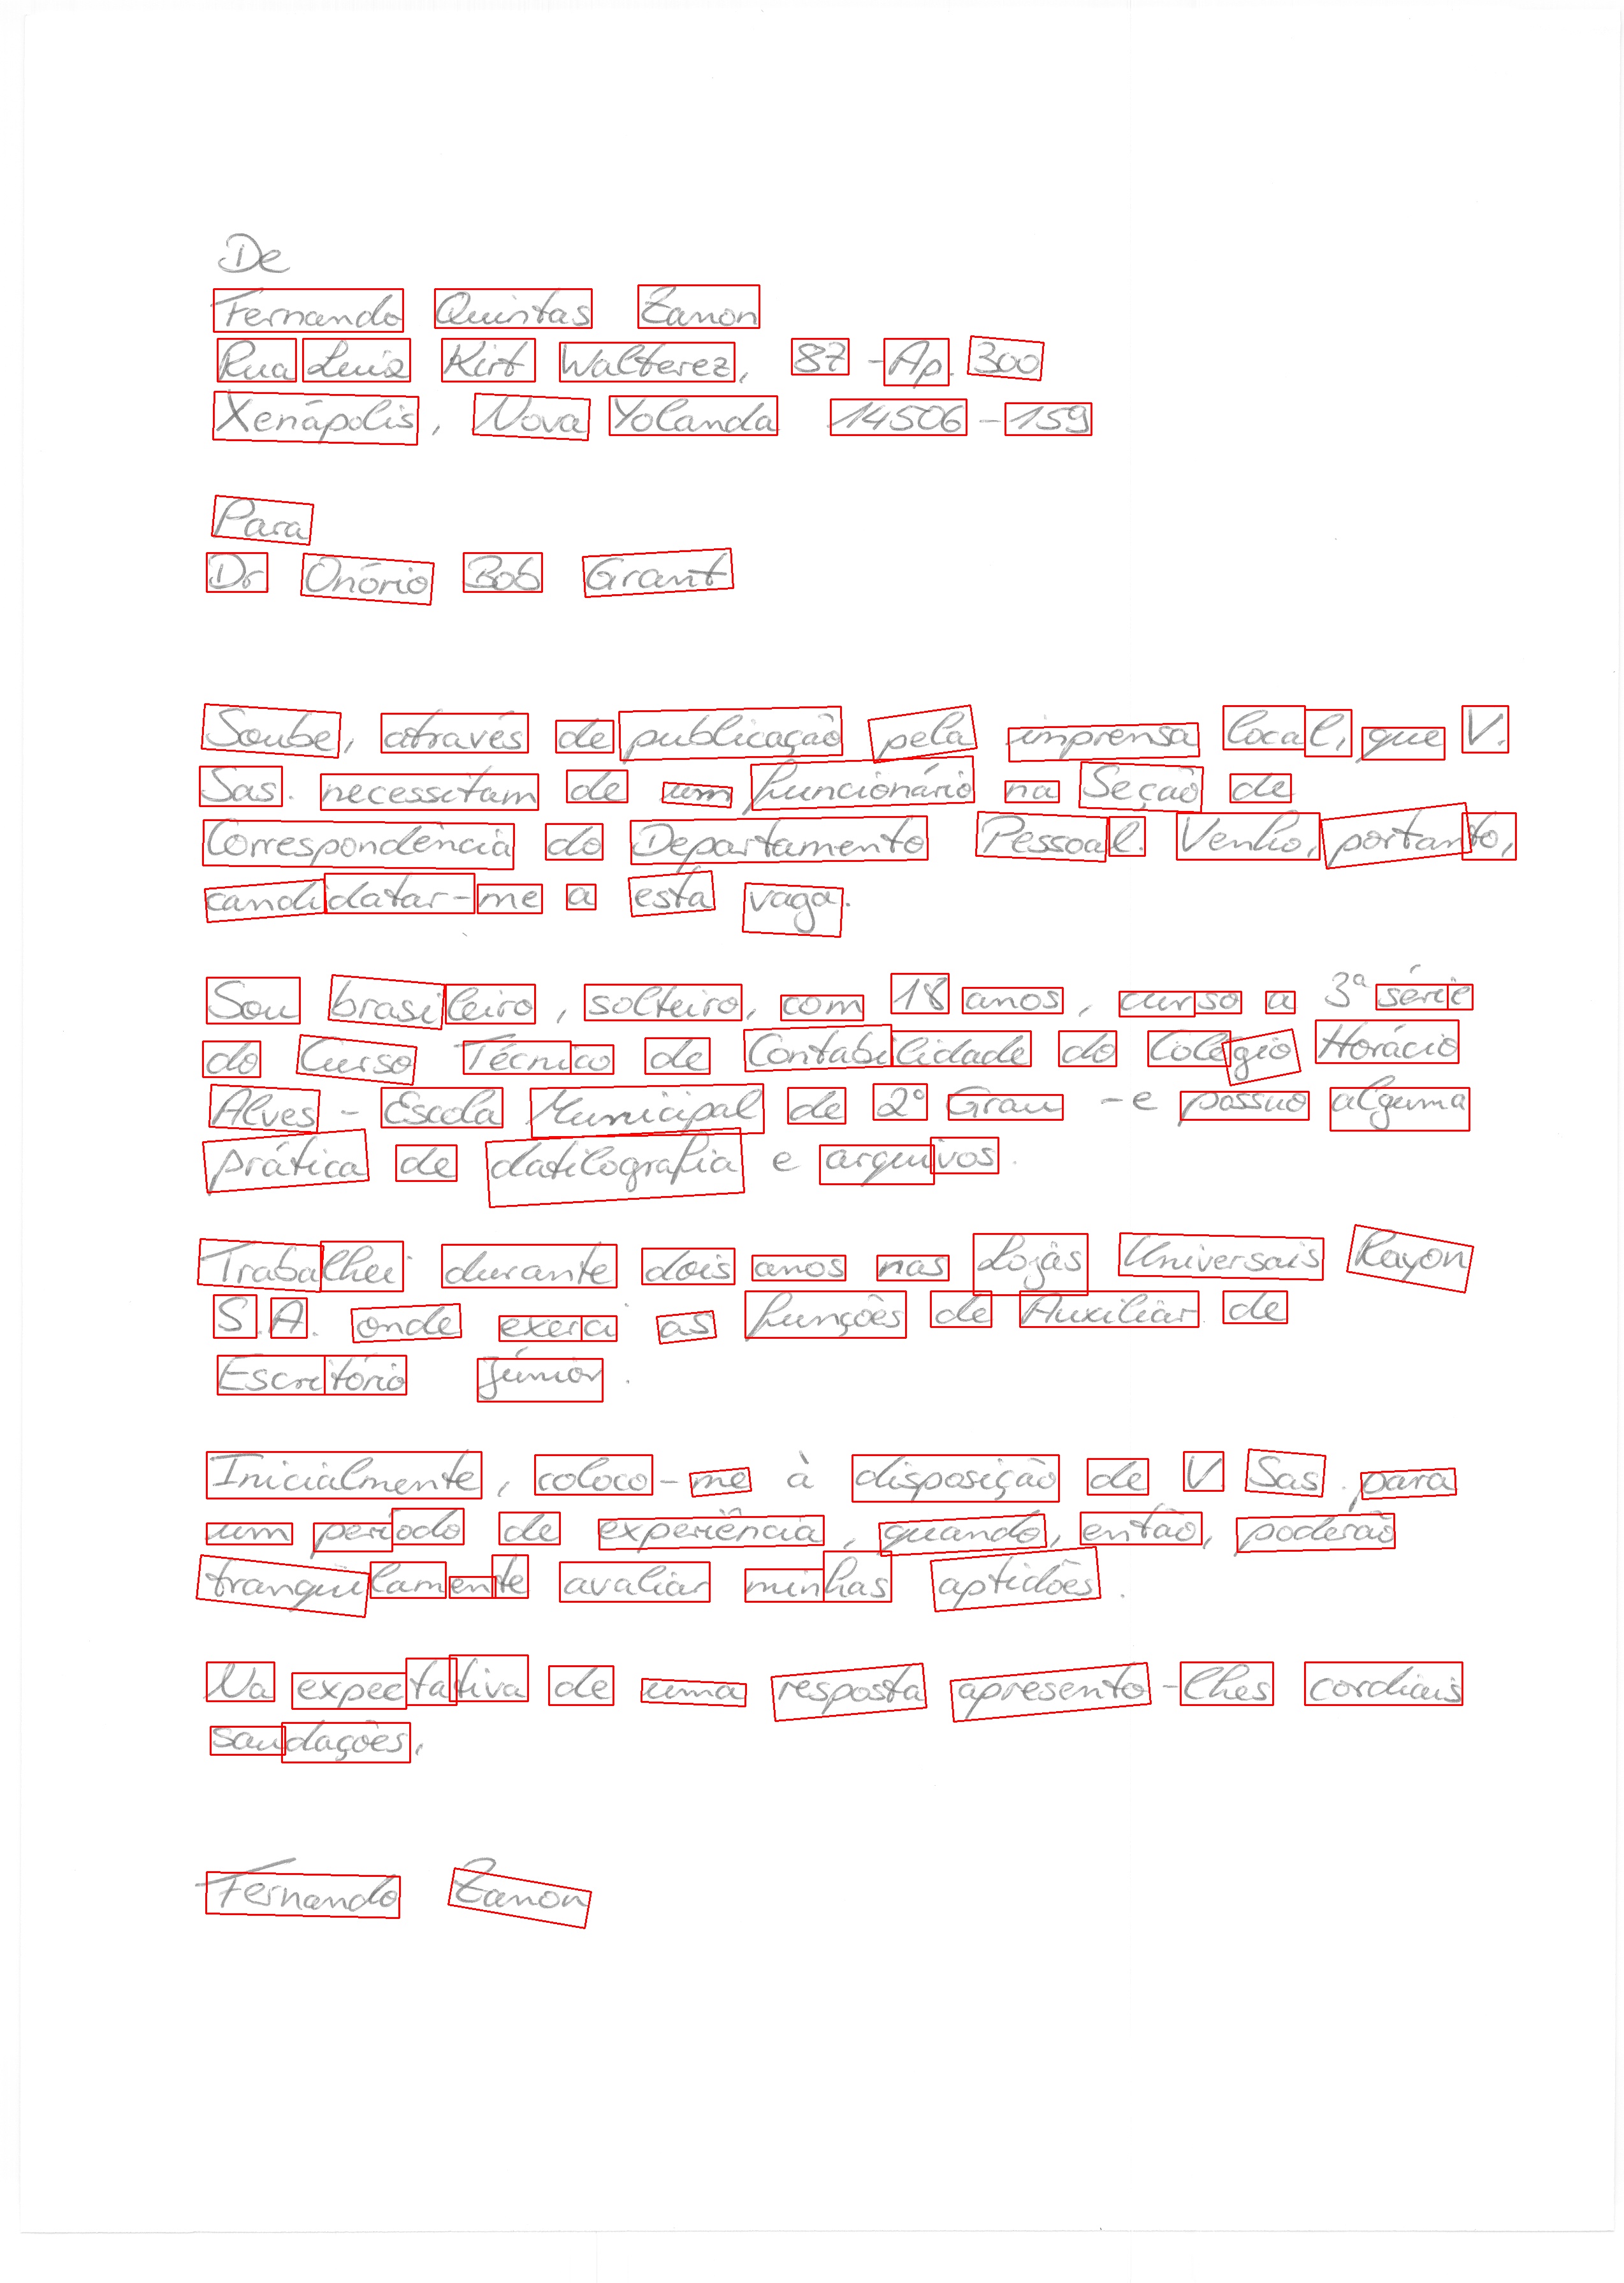 De
Fernando Quintas Zanon
Rua Luiz Kirt Walterez, 87 - Ap. 300
Xenápolis, Nova Yolanda 14506-159
Para
Dr Onório Bob Grant
Soube, através de publicação pela imprensa local, que V.
Sas. necessitam de um funcionário na Seção de
Correspondência do Departamento Pessoal. Venho, portanto,
candidatar-me a esta vaga.
Sou brasileiro, solteiro, com 18 anos, curso a 3ª série
do Curso Técnico de Contabilidade do Colégio Horácio
Alves - Escola Municipal de 2º Grau - e possuo alguma
prática de datilografia e arquivos.
Trabalhei durante dois anos nas Lojas Universais Rayon
S.A. onde exerci as funções de Auxiliar de
Escritório Júnior.
Inicialmente, coloco-me à disposição de V Sas. para
um período de experiência, quando, então, poderão
tranquilamente avaliar minhas aptidões.
Na expectativa de uma resposta apresento-lhes cordiais
saudações,
Fernando Zanon